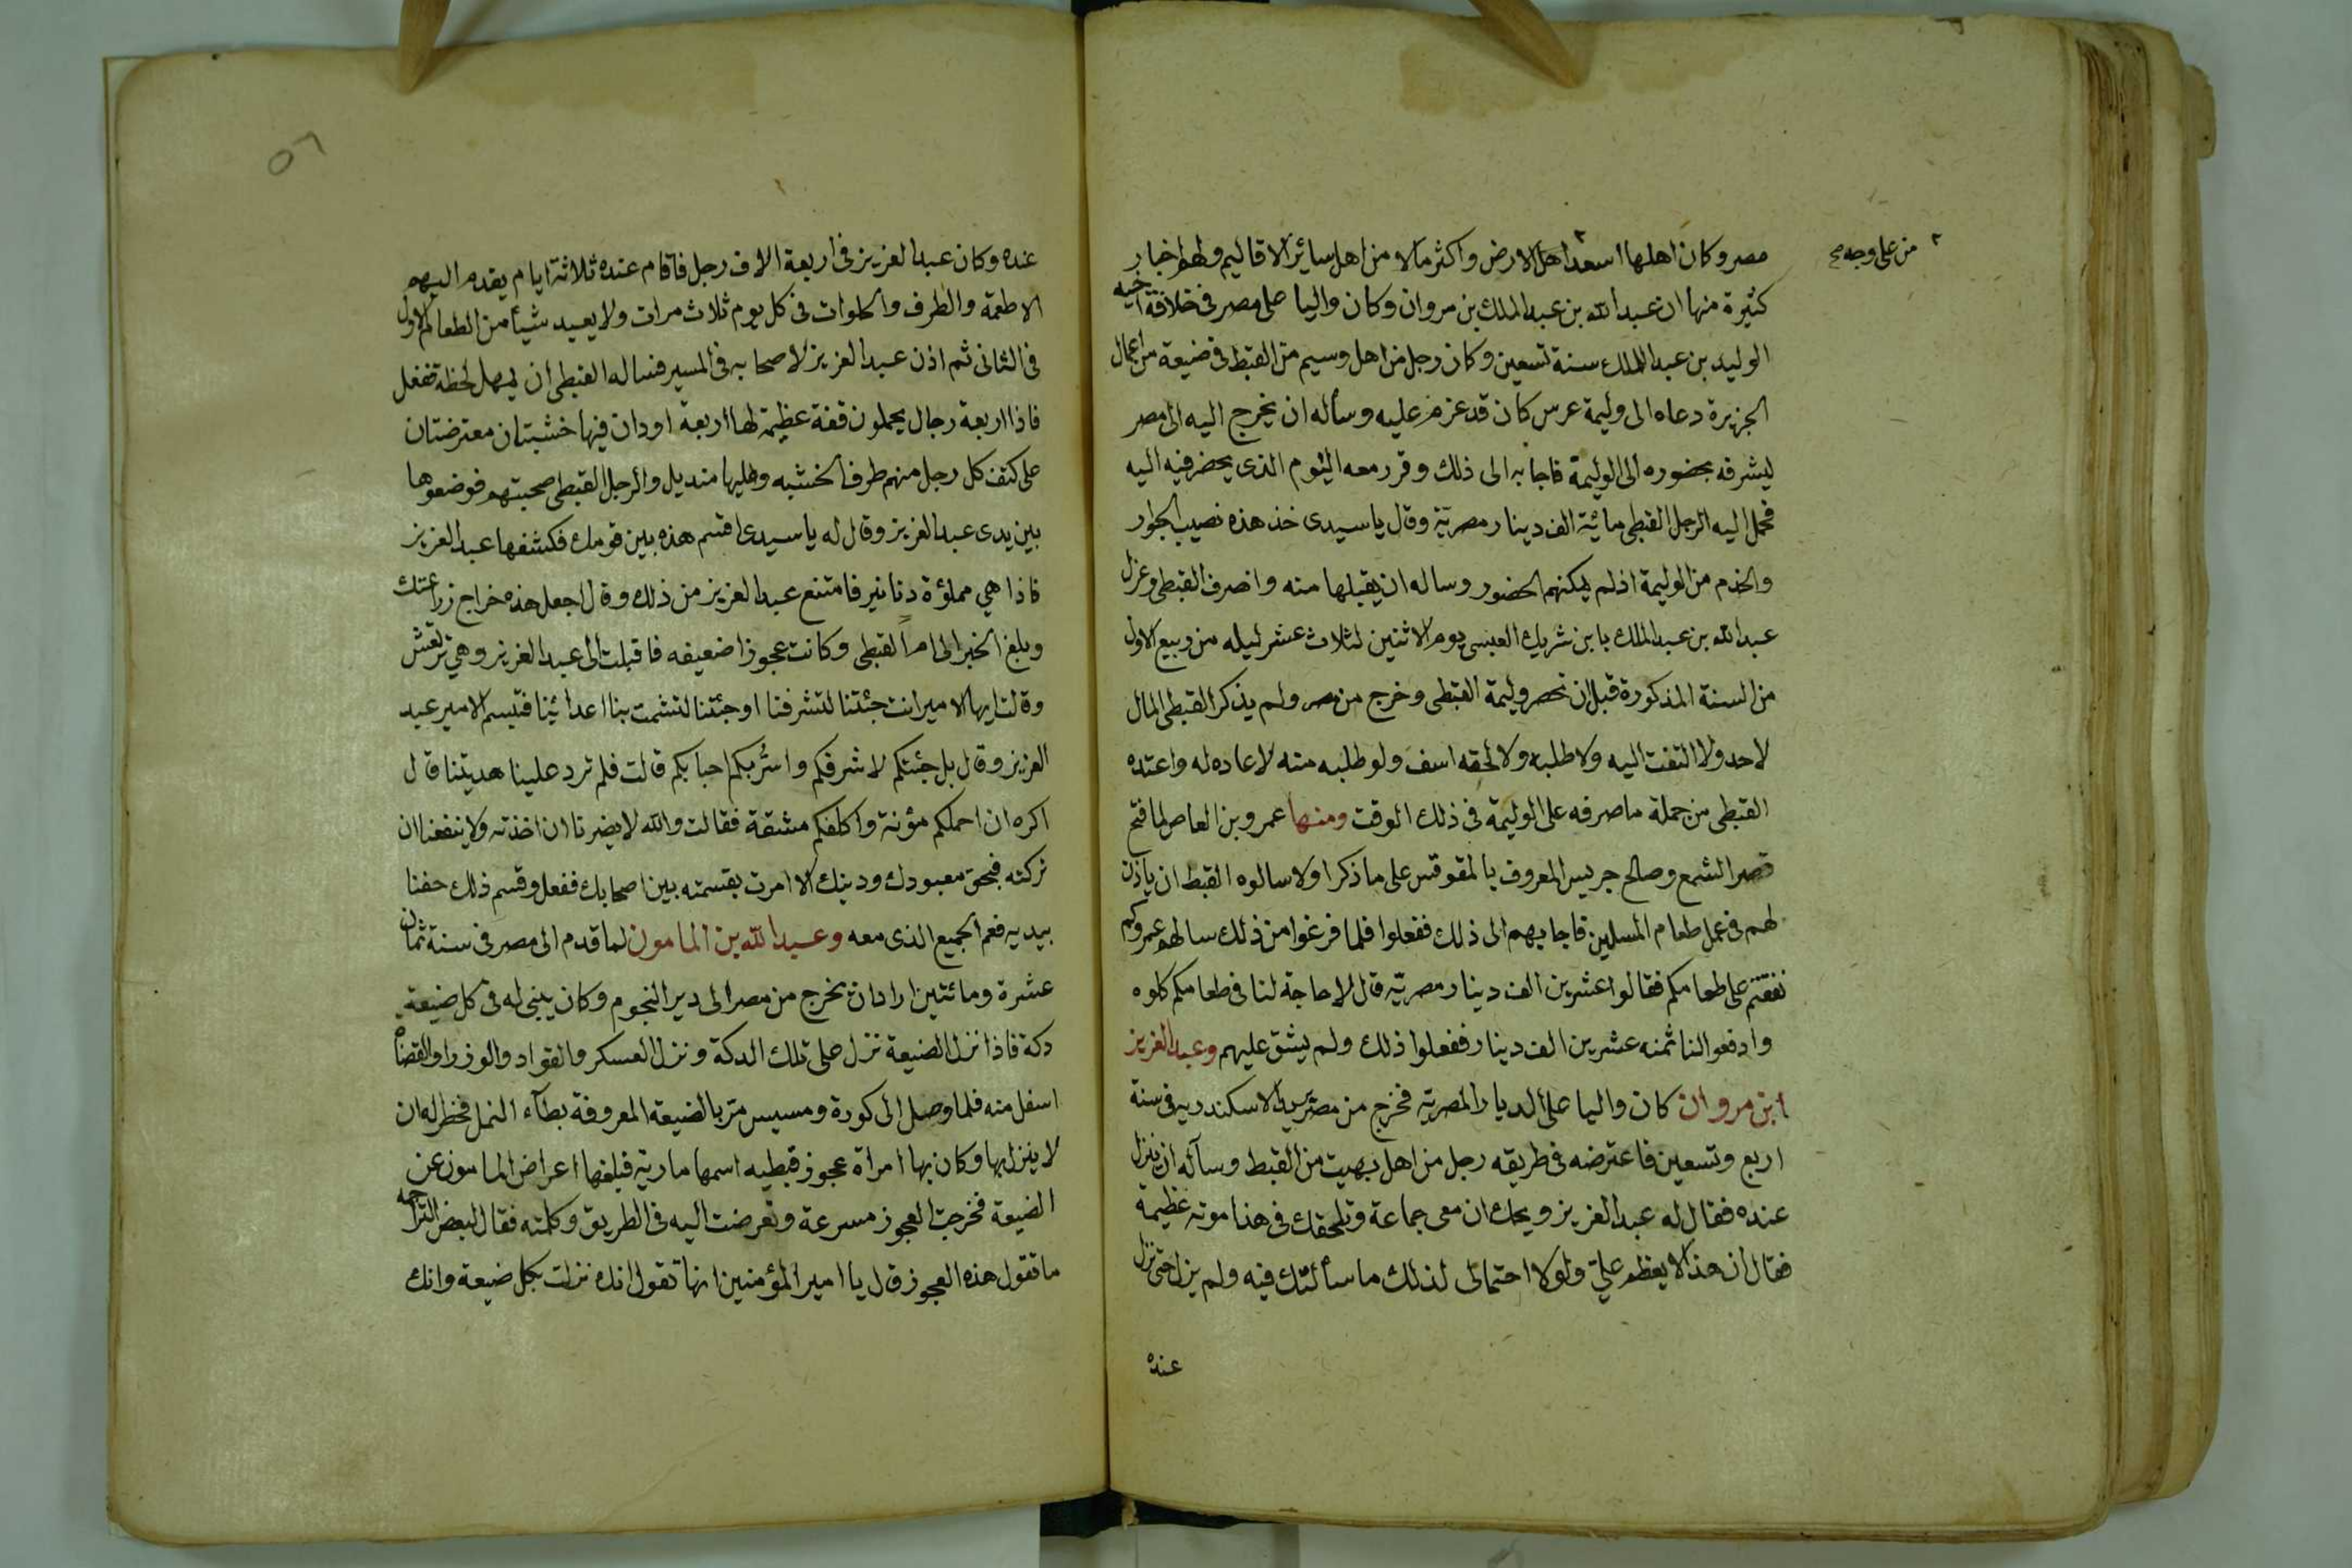 من على وجه صح
مصر وكان اهلها اسعد اهل الارض واكثر مالا من اهل ساير الاقاليم ولهم اخبار
كثيرة منها ان عبد الله بن عبد الملك بن مروان وكان واليا على مصر فى خلافة اخيه
الوليد بن عبد الملك سنة تسعين وكان رجل من اهل وسيم من القبط فى ضيعة من اعمال
الجزيرة دعاه الى وليمة عرس كان قد عزم عليه وسأله ان يخرج اليه الى مصر
ليشرفه بحضوره الى الوليمة فاجابه الى ذلك وقرر معه اليوم الذى يحضر فيه اليه
فحمل اليه الرجل القبطى مائية الف دينار مصرية وقال يا سيدى خذ هذه نصيب الجوار
والخدم من الوليمة اذ لم يمكنهم الحضور وساله ان يقبلها منه وانصرف القبطى وعزل
عبد الله بن عبد الملك بابن شريك العبسى يوم الاثنين لثلاث عشر ليله من ربيع الاول
من السنة المذكورة قبل ان تحصر وليمة القبطى وخرج من مصر ولم يذكر القبطى المال
لاحد ولا التفت اليه ولا طلبه ولا لحقه اسف ولو طلبه منه لاعاده له واعتده
القبطى من جملة ما صرفه على الوليمة فى ذلك الوقت ومنها عمرو بن العاص لما فتح
قصر الشمع وصالح جريس المعروف بالمقوقس على ما ذكر اولا سالوه القبط ان ياذن
لهم فى عمل طعام المسلين فاجابهم الى ذلك ففعلوا فلما فرغوا من ذلك سالهم عمرو كم
نفقتم على طعامكم فقالوا عشرين الف دينار مصريّه قال لا حاجة لنا فى طعامكم كلوه
وادفعوا لنا ثمنه عشرين الف دينار ففعلوا ذلك ولم يشق عليهم وعبد العزيز
ابن مروان كان واليا على الديار المصريه فخرج من مصر يريد الاسكندريه فى سنة
اربع وتسعين فاعترضه فى طريقه رجل من اهل بهيت من القبط وسأله ان ينزل
عنده فقال له عبد العزيز ويحك ان معى جماعة وتلحقك فى هذا مونه عظيمة
فقال ان هذا لا يعظم علىّ ولولا احتمالى لذلك ما سألتك فيه ولم يزل حتى نزل
عنده
٥٦
عنده وكان عبد العزيز فى اربعة الاف رجل فاقام عنده ثلاثة ايام يقدم اليهم
الاطعمة والطرف والحلوات فى كل يوم ثلاث مرات ولا يعيد شيأ من الطعام الاول
فى الثانى ثم اذن عبد العزيز لاصحابه فى المسير فساله القبطى ان يمهل لحظة ففعل
فاذا اربعة رجال يحملون قفة عظيمة لها اربعة اودان فيها خشبتان معترضتان
على كتف كل رجل منهم طرف الخشبه وعليها منديل والرجل القبطى صحبتهم فوضعوها
بين يدى عبد العزيز وقال له يا سيدى اقسم هذه بين قومك فكشفها عبد العزيز
فاذا هي مملؤة دنانير فامتنع عبد العزيز من ذلك وقال اجعل هذه خراج زراعتك
وبلغ الخبر الى ام القبطى وكانت عجوزا ضعيفه فاقبلت الى عبد العزيز وهي ترتعش
وقالت ايها الامير انت جئتنا لتشرفنا او جئتنا لتشمت بنا اعدائنا فتبسم الامير عبد
العزيز وقال بل جئتكم لاشرفكم واسُرّ بكم احبابكم قالت فلم ترد علينا هديتنا قال
اكره ان احملكم مؤنة واكلفكم مشقة فقالت والله لا يضرنا ان اخذته ولا ينفعنا ان
تركته فبحق معبودك ودينك الا امرت بقسمته بين اصحابك ففعل وقسم ذلك حفنا
بيديه فعم الجميع الذى معه وعبد الله بن المامون لما قدم الى مصر فى سنة ثمان
عشرة ومائتين اراد ان يخرج من مصر الى دير النجوم وكان يبنى له فى كل ضيعة
دكة فاذا نزل الضيعة نزل على تلك الدكة ونزل العسكر والقواد والوزرا والقضاه
اسفل منه فلما وصل الى كورة ومسيس مرّ بالضيعة المعروفة بطآء النمل فخطر له ان
لا ينزل بها وكان بها امراة عجوز قبطيه اسمها مارية فبلغها اعراض المامون عن
الضيعة فخرجت العجوز مسرعة وتعرضت اليه فى الطريق وكلمته فقال لبعض التراجمه
ما تقول هذه العجوز قال يا امير المؤمنين انها تقول انك نزلت بكل ضيعة وانك